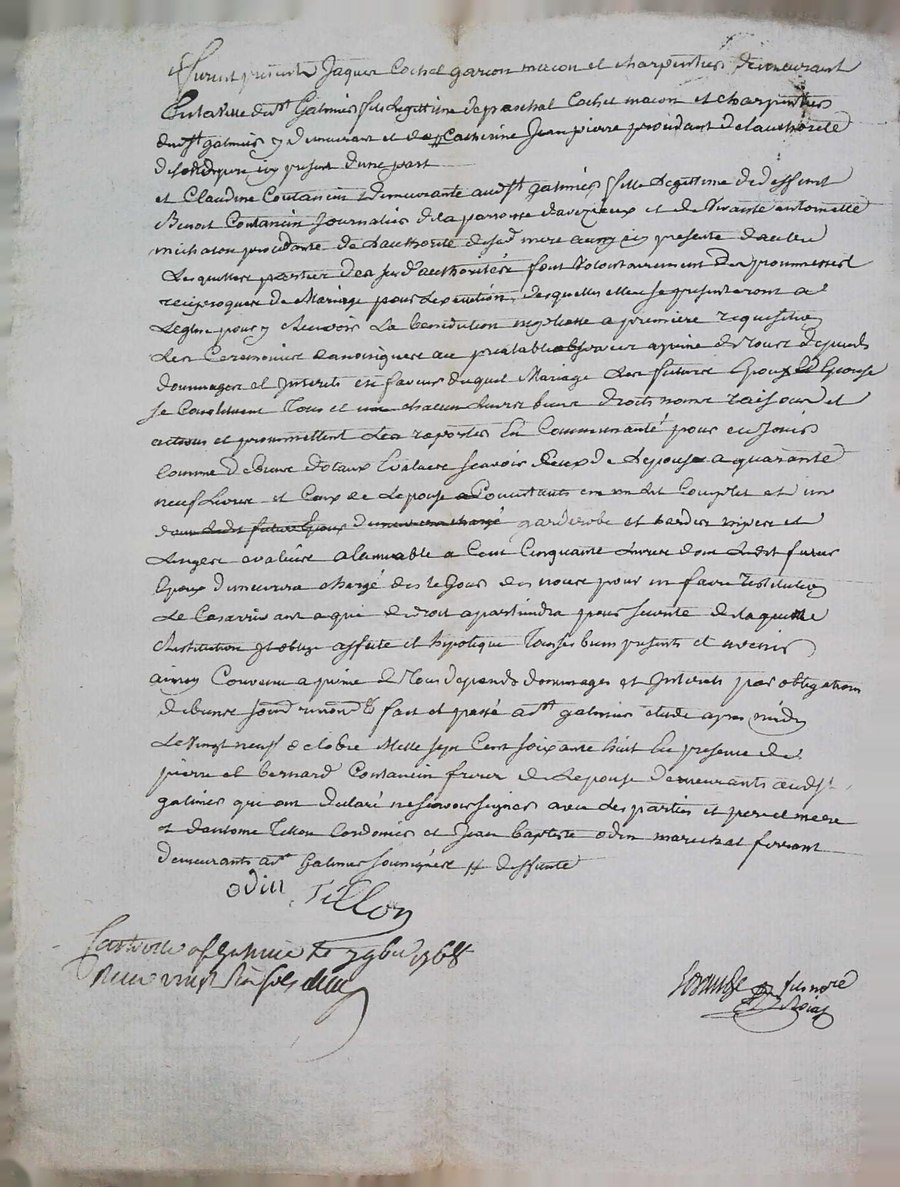 Furent présents Jaques Cochet garcon macon et charpentier demeurant
En la ville de st Galmier fils legitime de paschal Cochet macon et charpentier
dud st galmier y demeurant et de # Catherine Jeanpierre procedant de lauthorité
de sond pere icy present dune part
et Claudine Coutancin demeurante aud st galmier fille Legitime de deffunt
Benoit Coutancin Journalier de la paroisse daveizieux et de vivante antoinette
michalon procedante de Lauthorité de sad mere aussy icy presente dautre
Lesquelles parties des susd authorités font volontairement les promesses
reciproques de Mariage pour Lexecution desquelles elles se presenteront a
Leglise pour y recevoir La benediction nuptiale a premiere requisition
Les Ceremonies canoniques au prealable observées a peine de tous depends
dommages et Interets en faveur duquel Mariage Les futurs Epoux et Epouse
se Constituent tous et chacun Leurs biens droits noms raisons et
actions et promettent Les raporter En Communauté pour en Jouir
comme de biens dotaux Evalués scavoir Ceux de Lepoux a quarante
neuf Livres et Ceux de Lepouse Consistants en un Lit Complet et un
garderobe et hardes nipes et
Linges avalués alamiable a Cent Cinquante Livres dont Ledit futur
Epoux demeurera chargé des le Jour des noces pour en faire restitution
Le Cas arrivant a qui de droit apartiendra pour sureté de laquelle
Restitution il oblige affecte et hipoteque tous ses biens presents et avenir
ainsy Convenu a peine de tous depends dommages et Interets par obligation
de biens soumd renond & fait et passé a st galmier etude apres midy
Le vingt neuf octobre Mille sept Cent soixante huit En presence de
pierre et bernard Coutancin freres de Lepouse demeurants aud st
galmier qui ont declaré ne scavoir signer avec les parties et pere et mere
et dantoine Tillon Cordonier et Jean baptiste odin marechal ferrant
demeurants a st Galmier soussignés # deffunte
odin Tillon
Controllé a st Galmier le 7 9bre 1768
Recu vingt six sols